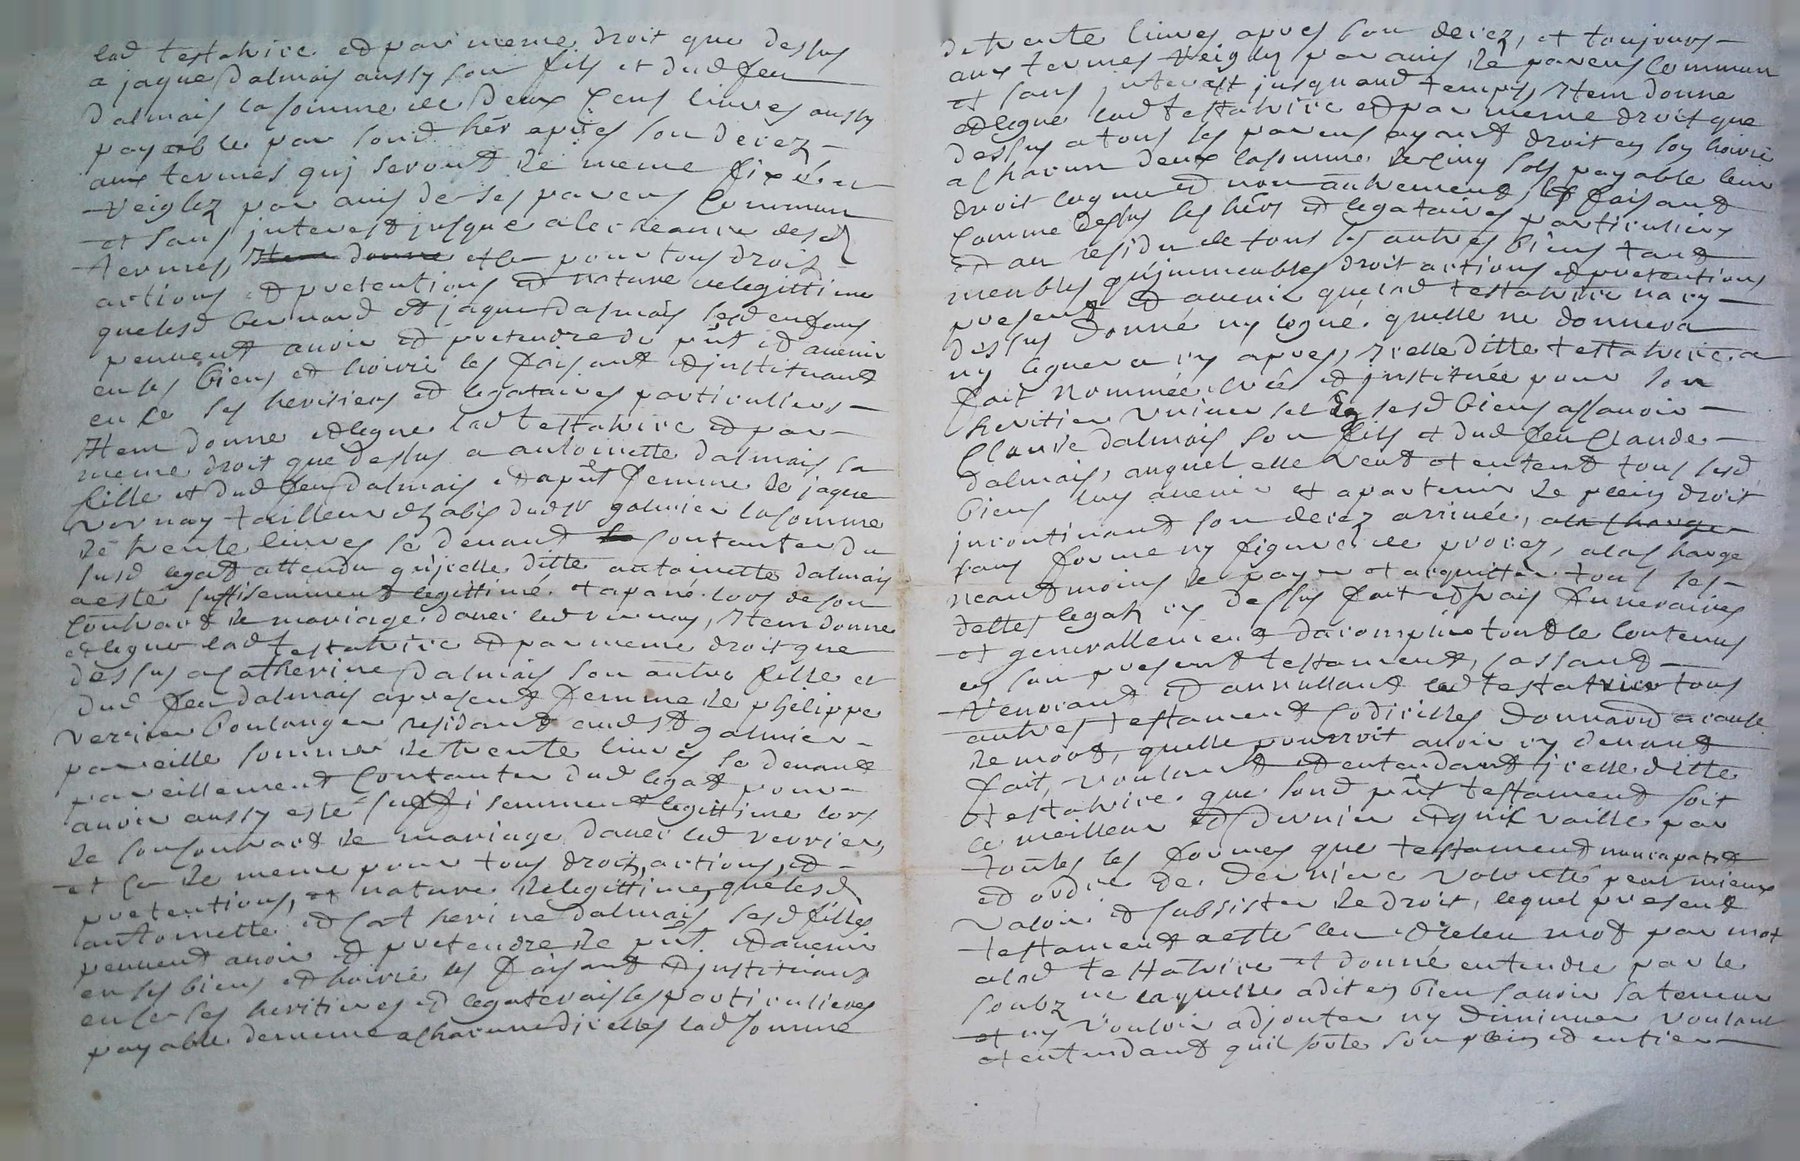 lad testatrice et par meme droit que dessus
a jaque dalmais aussy son fils et dud feu
dalmais la somme de deux cens livres aussy
payable par sond her apres son decez
aux termes quj seront de meme fixé et
reiglez par avis de ses parens Commun
et sans interest jusque a lecheance desd
termes, Item donne et ce pour tous droits
actions et pretentions et nature de legittime
que lesd bernard et jaque dalmais sesd enfans
peuvent avoir et pretendre de pnt et avenir
en ses biens et hoirie les faisant et jnstituant
en ce ses heritiers et legataires particuliers
Item donne et legue lad testatrice et par
meme droit que dessus a antoinette dalmais sa
fille et dud feu dalmais et a pnt femme de jaque
vernay tailleur d'habis dud st galmier la somme
de trente livres se devant contanter du
susd legat attendu qu'jcelle ditte antoinette dalmais
a esté suffisemment legittimé et apané lors de son
Contract de mariage d'avec led vernay, Item donne
et legue lad testatrice et par meme droit que
dessus a Catherine dalmais son autre fille et
dud feu dalmais a present femme de philippe
verrier boulanger residant aud st galmier
pareille somme de trente livres se devant
pareillement Contanter dud legat pour
avoir aussy esté suffisemment legittime lors
de son Contract de mariage d'avec led verrier,
et ce de meme pour tous droits, actions, et
pretentions, et nature de legittime, que lesd
antoinette et Catherine dalmais sesd filles
peuvent avoir et pretendre de pnt et avenir
en ses biens et hoirie les faisant et jnstituant
en ce ses heritieres et legateraisses particulieres
payable de meme a chacune d'jcelles lad somme
de trente livres apres son decez, et toujours
aux termes reiglés par avis de parens Commun
et sans jnterest jusquaud temps, Item donne
et legue lad testatrice et par meme droit que
dessus a tous ses parens ayant droit en son hoirie
a chacun deux la somme de cinq sols payable leur
droit cognu et non autrement, les faisant
Comme dessus ses hers et legataires particuliers
et au residu de tous ses autres biens tant
meubles qu'jmmeubles droit actions et pretentions
present et avenir que lad testatrice na cy
dessus donné ny legué, quelle ne donnera
ny leguera cy apres, jcelle ditte testatrice a
fait nommée crée et jnstituée pour son
heritier universel de sesd biens assavoir
Claude dalmais son fils et dud feu Claude
dalmais, auquel elle veut et entend tous sesd
biens luy avenir et apartenir de plein droit
jncontinant son decez arrivée, a la charge
sans forme ny figure de procez, a la charge
neantmoins de payer et acquitter tous ses
dettes legats cy dessus fait et frais funeraires
et generallement dacomplir tout le Contenus
en son present testament, cassant
revocant et annullant lad testatrice tous
autres testament Codicilles donnaon a cause
de mort, quelle pourroit avoir cy devant
fait, voulant et entendant jcelle ditte
testatrice que sond pnt testament soit
le meilleur et dernier et quil vaille par
toutes les formes que testament noncupatif
et ordre de derniere volonté peut mieux
valoir et subsister de droit, lequel present
testament a esté leu et releu mot par mot
a lad testatrice et donné entendre par le
soubz ne laquelle a dit en bien scavoir sa teneur
et ny vouloir adjouter ny diminuer voulant
et entendant quil sorte son plein et entier